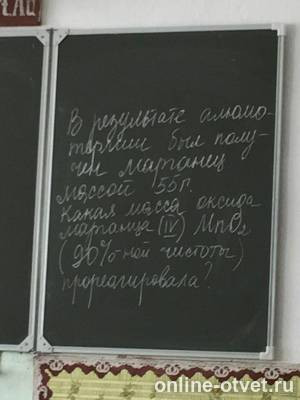 В результате алюмо-
термии был полу-
чен марганец
массой 55г.
Какая масса оксида
марганца (IV) MnO₂
(90%-ной чистоты)
прореагировала?
online-otvet.ru